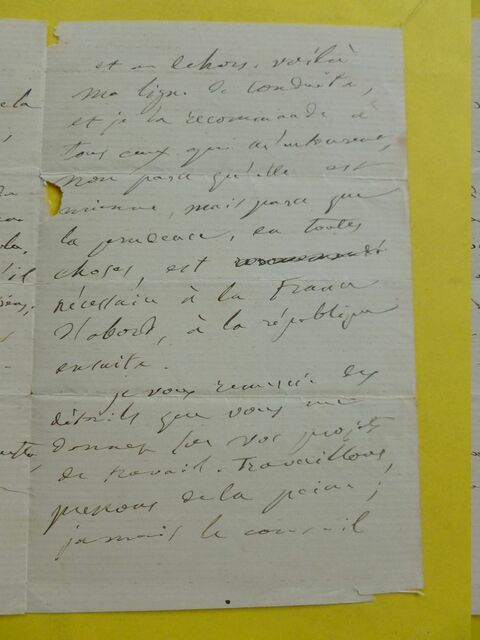 et au dehors. voilà
ma ligne de conduite,
et je la recommande à
tous ceux qui m'entourent,
non parce qu'elle est
mienne, mais parce que
la prudence, en toutes
choses, est
nécessaire à la France
d'abord, à la république
ensuite.
je vous remercie des
détails que vous me
donnez sur vos projets
de travail. Travaillons,
prenons de la peine ;
jamais le conseil